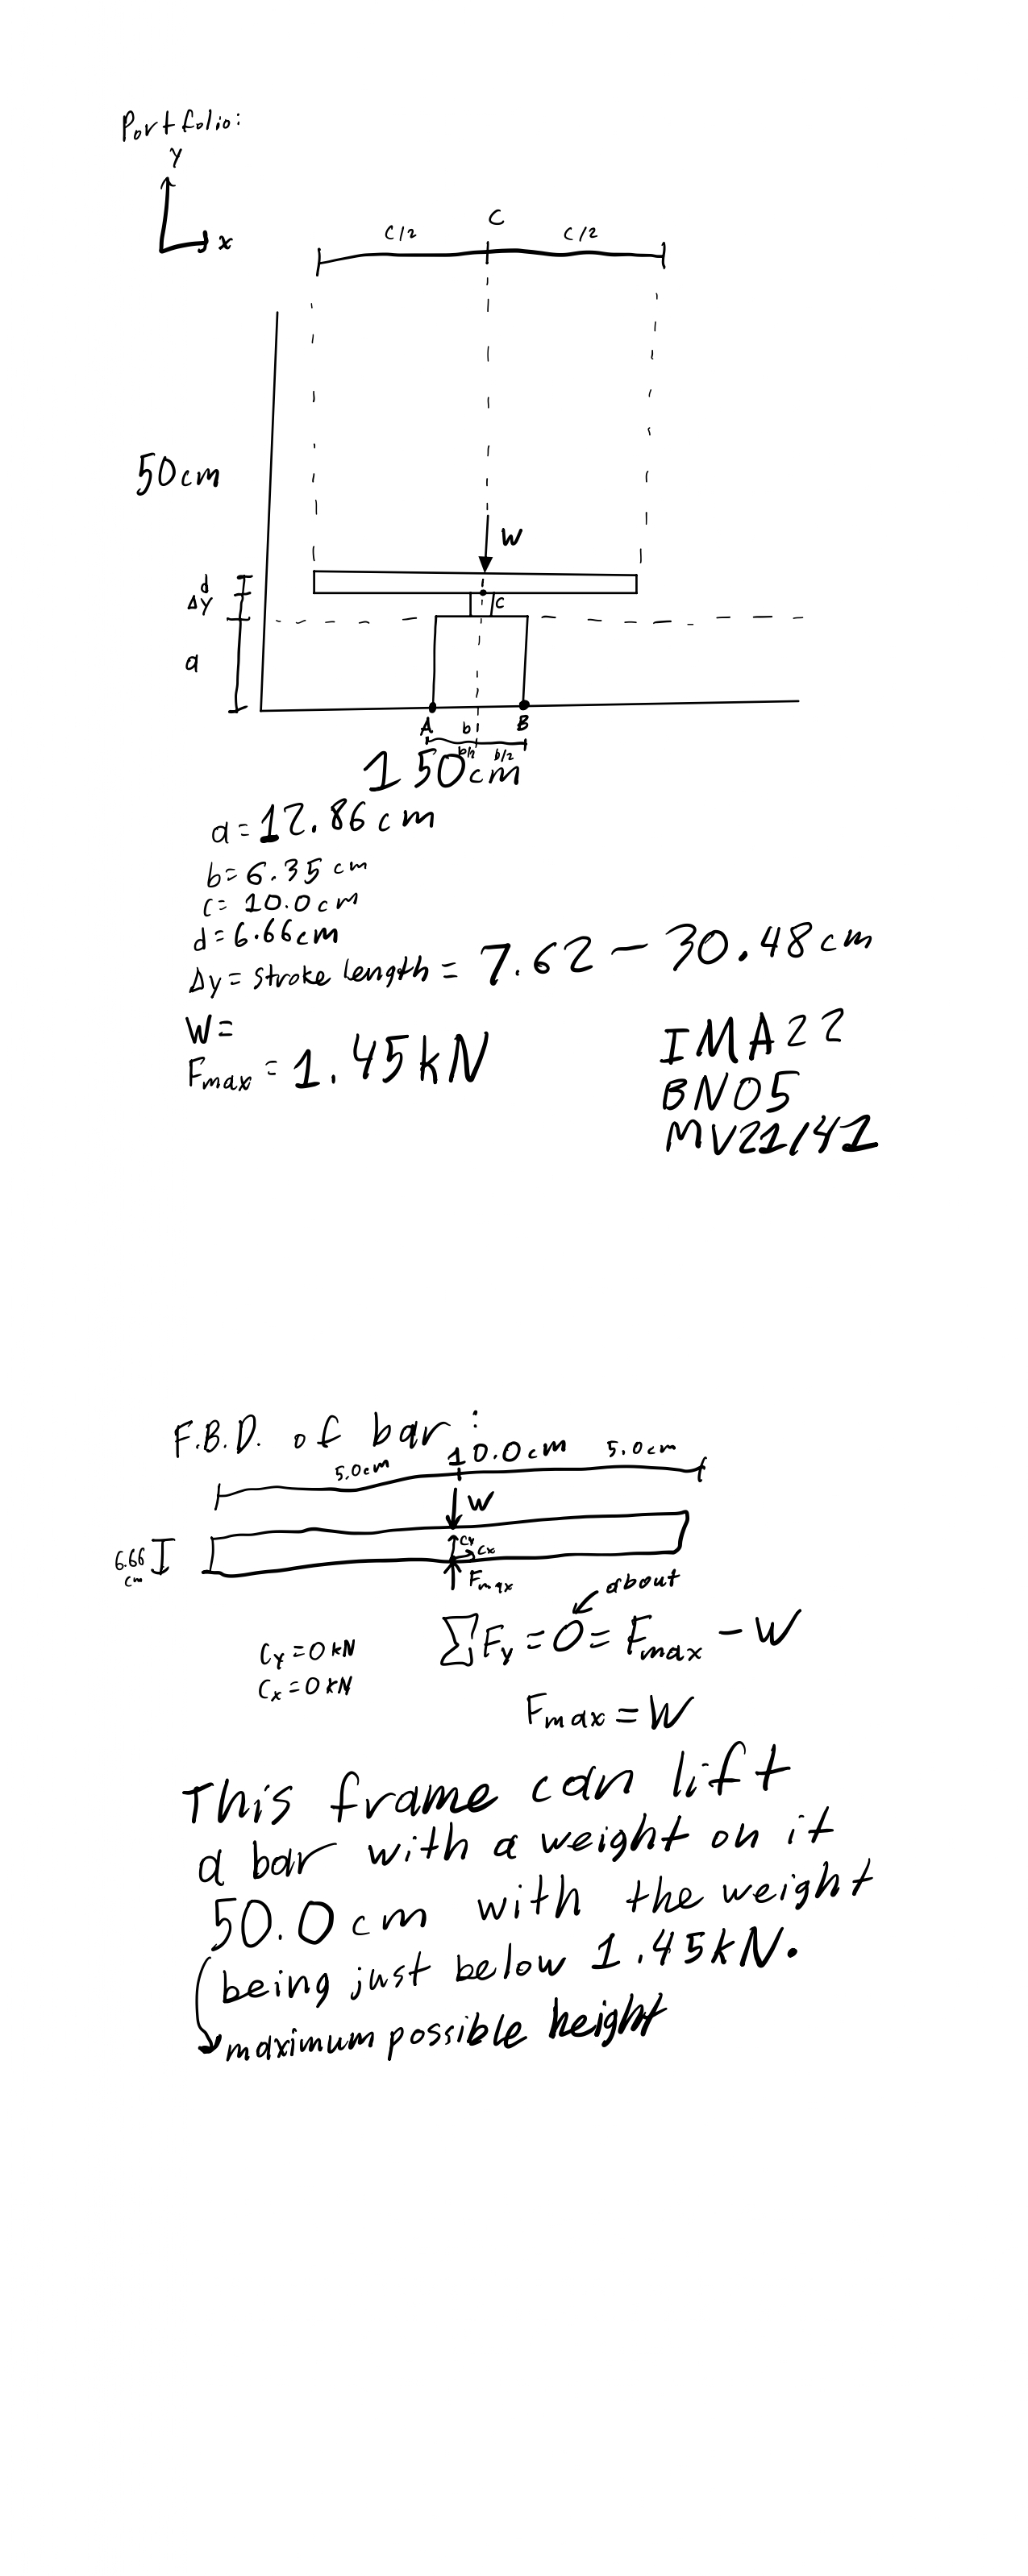 Portfolio:
y
x
C
C/2
C/2
50cm
W
d
Δy
c
a
A
b
B
b/2
b/2
150cm
a=12.86cm
b=6.35 cm
c= 10.0cm
d=6.66cm
Δy= stroke length = 7.62 - 30.48cm
W=
Fmax = 1.45kN
IMA22
BN05
MV21/41
F.B.D. of bar:
5.0cm
10.0cm
5.0cm
W
6.66
cm
Cy
Cx
Fmax
about
ΣFy=0=Fmax-W
Cy=0 kN
Cx=0 kN
Fmax=W
This frame can lift
a bar with a weight on it
50.0cm with the weight
being just below 1.45kN.
maximum possible height